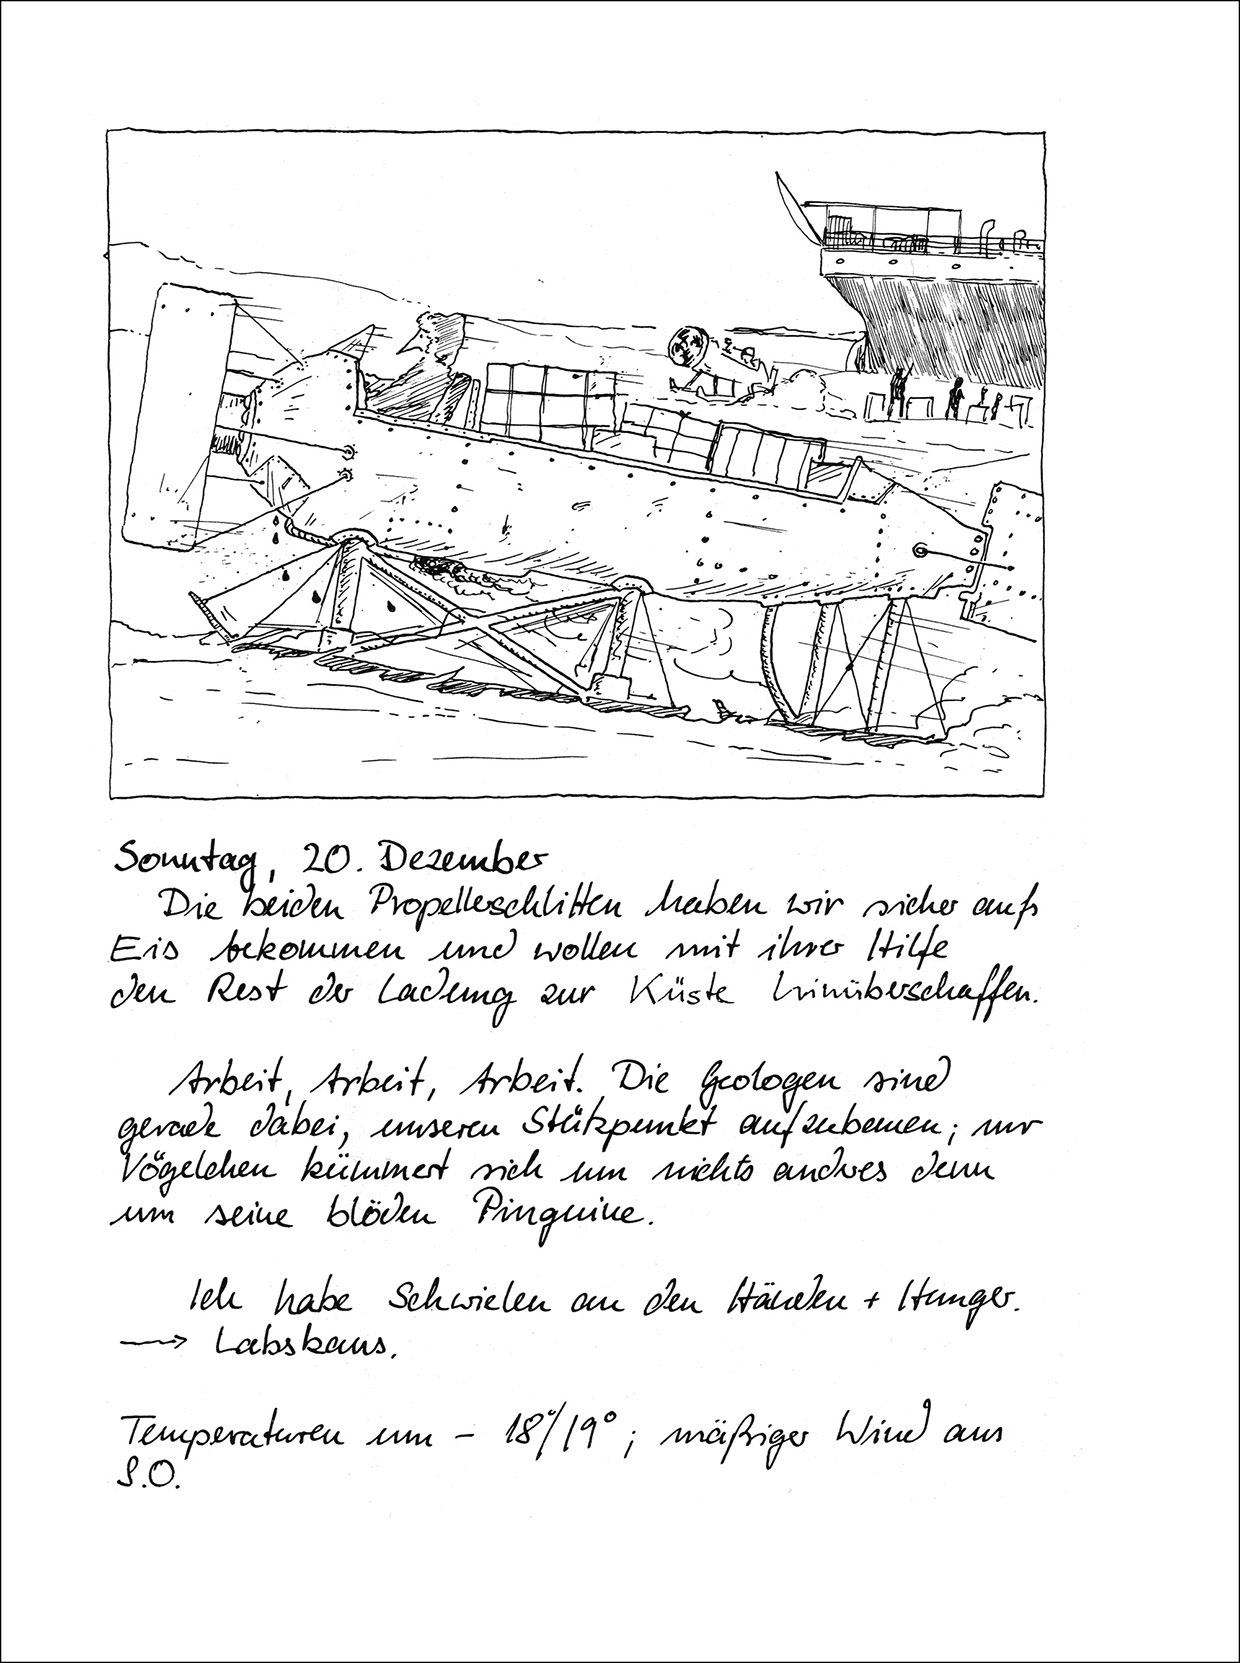 Sonntag, 20. Dezember
Die beiden Propellerschlitten haben wir sicher aufs
Eis bekommen und wollen mit ihrer Hilfe
den Rest der Ladung zur Küste hinüberschaffen.
Arbeit, Arbeit, Arbeit. Die Geologen sind
gerade dabei, unseren Stützpunkt aufzubauen; nur
Vögelchen kümmert sich um nichts andres denn
um seine blöden Pinguine.
Ich habe Schwielen an den Händen + Hunger.
→ Labskaus.
Temperaturen um - 18°/19°; mäßiger Wind aus
S.O.